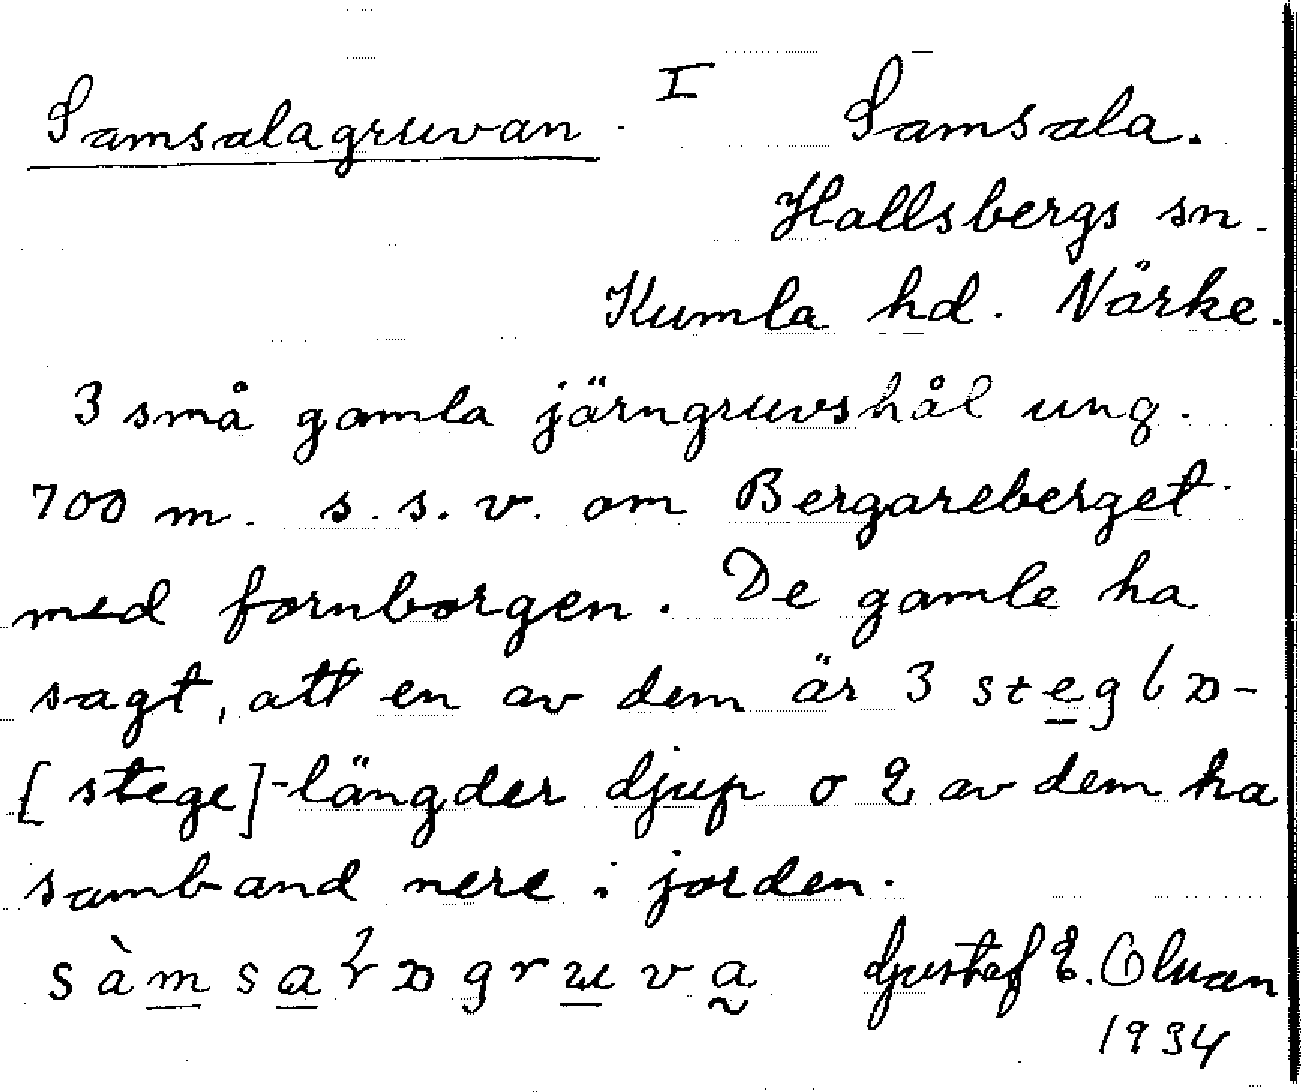 Samsalagruvan. I Samsala.
Hallsbergs sn.
Kumla hd. Närke.
3 små gamla järngruvshål ung.
700 m. s. s. v. om Bergareberget
med fornborgen. De gamle ha
sagt, att en av dem är 3
[stege]-längder djup o 2 av dem ha
samband nere i jorden.
Gustaf E. Olsson
1934